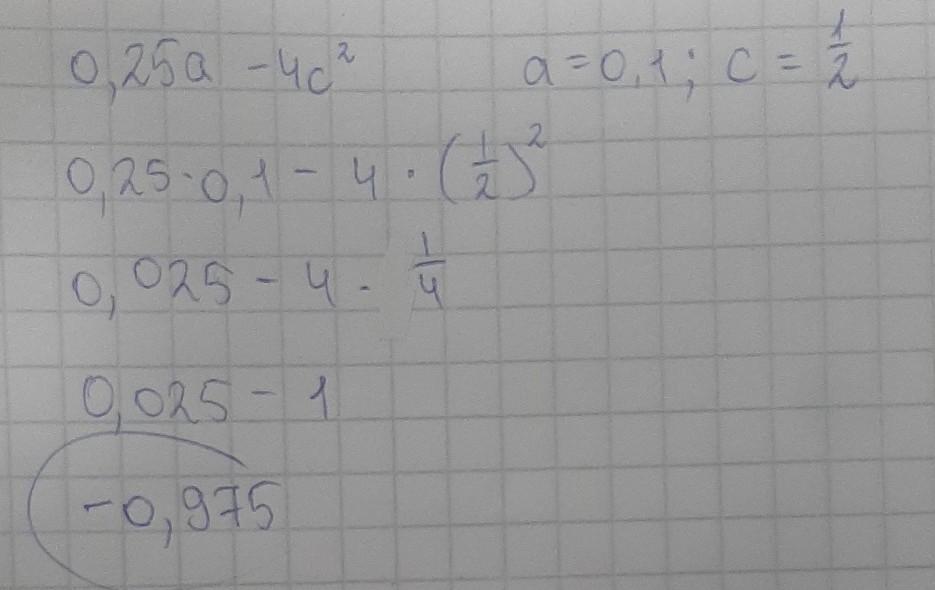 0,25a - 4c² a = 0,1; c = 1/2
0,25·0,1 - 4 · (1/2)²
0,025 - 4 · 1/4
0,025 - 1
-0,975